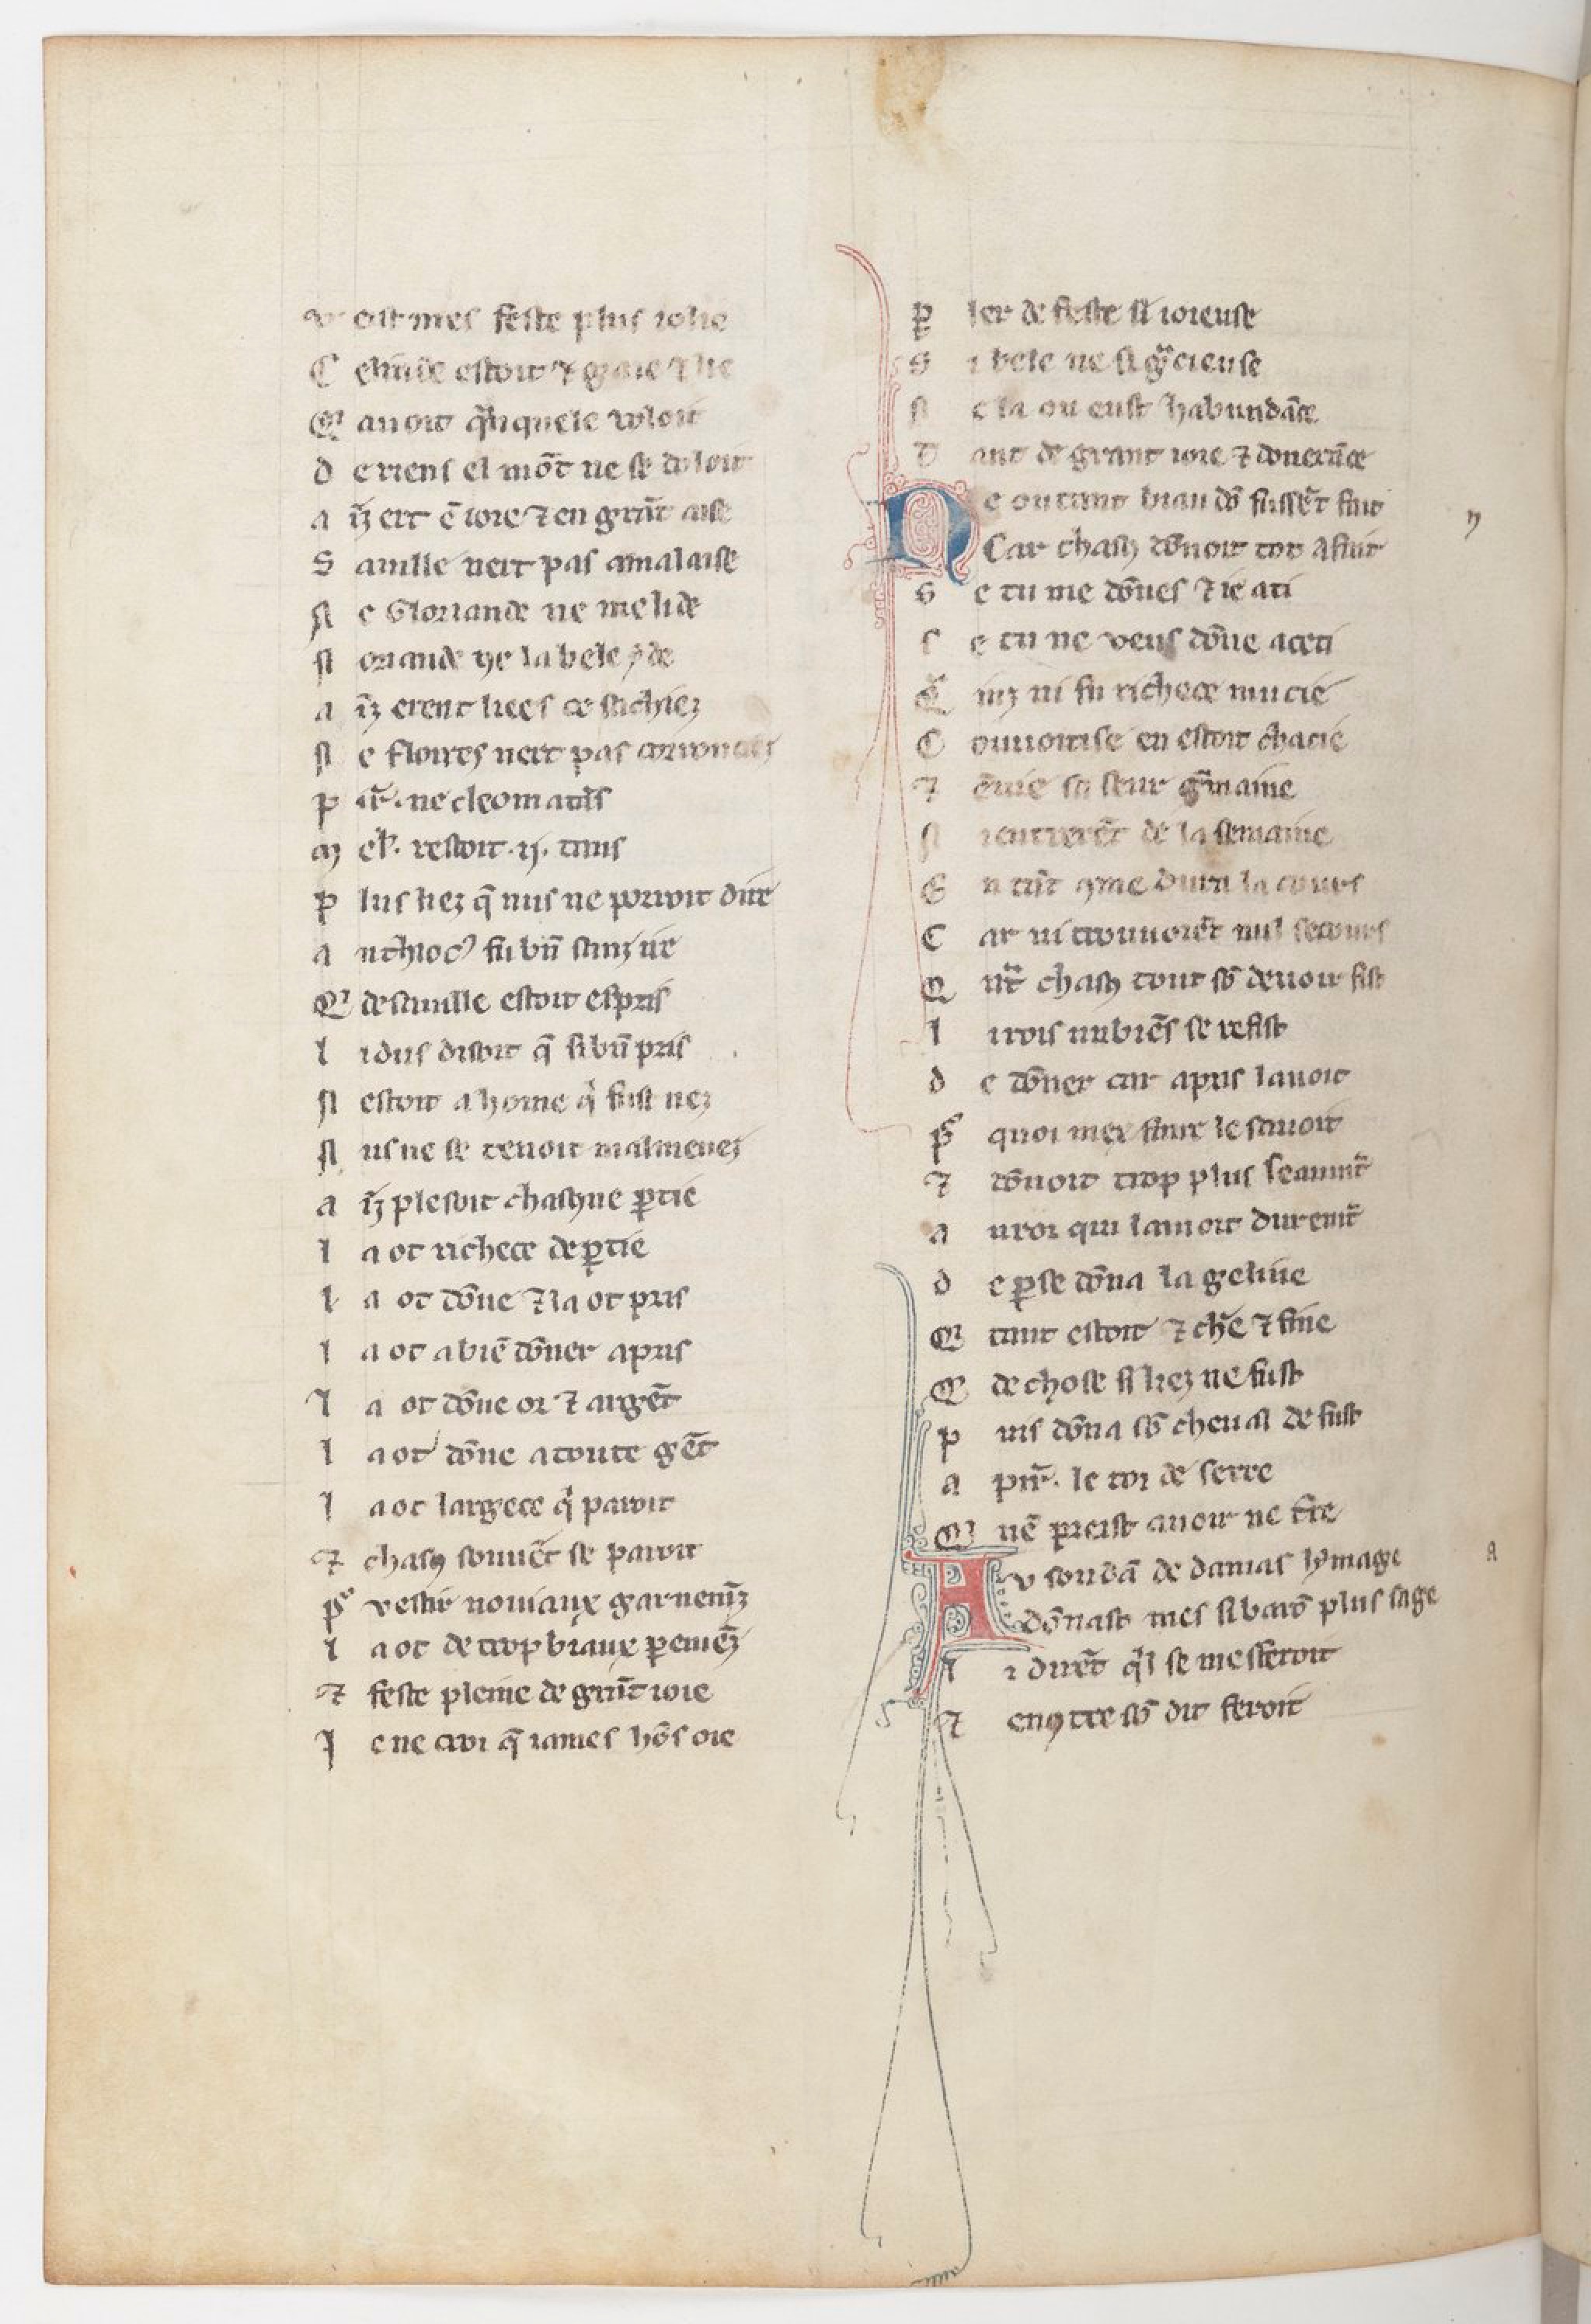 v oist mes feste plus iolie
C elinde estoit ⁊ gaie ⁊ lie
Q̃ auoit q̃nquele voloit
d e riens el mõt ne se doloit
a ñz ert ẽ ioie ⁊ en grãt aise
S amille nert pas amalaise
N e Gloriande ne melide
N oriande ne la bele yde
a ñz erent liees ce sachiez
N e floires nert pas coriouciez
p ir̃. ne cleomadẽs
M el̃. restoit .ij. tans
P lus liez q̃ nus ne porroit dire
a nthioc⁹ fu bñ sanz ire
Q̃ de samille estoit espris
l idus disoit q̃ si bñ pris
N estoit a home q̃ fust nez
N us ne se tenoit malmenez
a ñz plesoit chascune ꝑtie
l a ot richece deꝑtie
l a ot dõne ⁊ la ot pris
l a ot a biẽ dõner apris
l a ot dõne or ⁊ argẽt
l a ot dõne a toute gẽt
l a ot largece q̃ paroit
⁊ chasꝯ souuẽt se paroit
p̃ vestir nouiaux garnemẽz
l a ot de trop biaux ꝑemẽz
⁊ feste pleine de grãt ioie
J e ne croi q̃ iames hõs oie
ꝑ ler de feste si ioieuse
S i bele ne si g̃cieuse
N e la ou eust habundãce
T ant de grant ioie ⁊ dõnerãce
N e ou tant biau dõ fussẽt fait
Car chasꝯ dõnoit tot A fait
S e tu me dõnes ⁊ ie a ti
S e tu ne veus dõne a ceti
inz ni fu richece mucie
C ouuoitise en estoit chacie
⁊ ẽuie sa seur g̃maine
N i entrerẽt de la semaine
E n tãt ꝯme dura la cours
C ar ni trouuorẽt nul secours
Q ñt chasꝯ tout sõ deuoir fist
l i rois nubiẽs se refist
d e dõner car apris lauoit
p̃ quoi miex faire le sauoit
⁊ dõnoit trop plus seaumẽt
a u roi qui lamoit duremẽt
d e ꝑse dõna la geline
Q̃ tant estoit ⁊ chẽ ⁊ fine
Q̃ de chose si liez ne fust
p uis dõna sõ cheual de fust
a pir̃. le roi de serre
Q̃ nẽ preist auoir ne t̃re
A v soudã de damas lymage
dõnast mes si barõ plus sage
l i dirẽt q̃l se mesferoit
⁊ enꝯtre sõ dit feroit
n
A